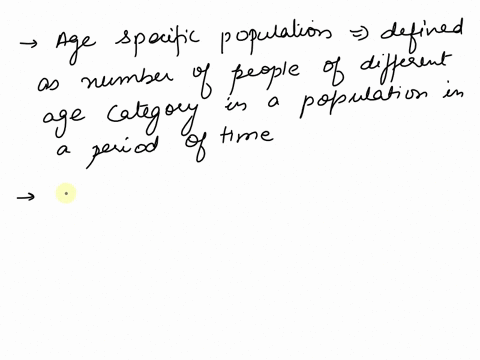 → Age specific population ⇒ defined
as number of people of different
age category in a population in
a period of time
→